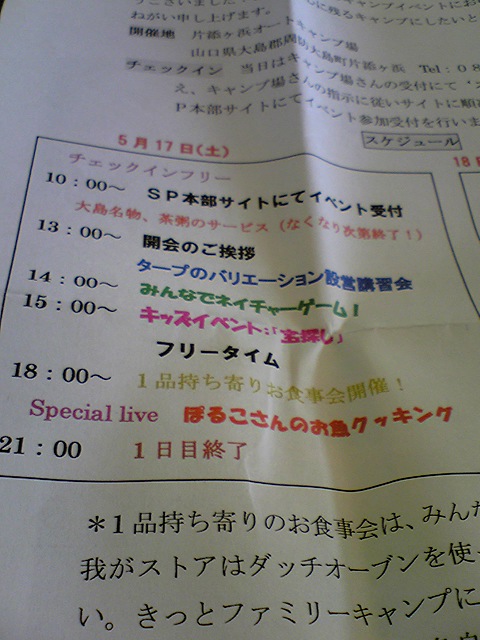 ねがい申し上げます。
開催地 片添ヶ浜オートキャンプ場
山口県大島郡周防大島町片添ヶ浜 Tel：０８
チェックイン 当日はキャンプ場さんの受付にて
え、キャンプ場さんの指示に従いサイトに順
Ｐ本部サイトにてイベント参加受付を行いま
スケジュール
５月１７日(土)
18
チェックインフリー
10：00〜 ＳＰ本部サイトにてイベント受付
大島名物、茶粥のサービス（なくなり次第終了！）
13：00〜 開会のご挨拶
タープのバリエーション設営講習会
14：00〜 みんなでネイチャーゲーム！
15：00〜 キッズイベント：「宝探し」
フリータイム
18：00〜 １品持ち寄りお食事会開催！
Special live ぽるこさんのお魚クッキング
21：00 １日目終了
＊１品持ち寄りのお食事会は、みん
我がストアはダッチオーブンを使
い。きっとファミリーキャンプに